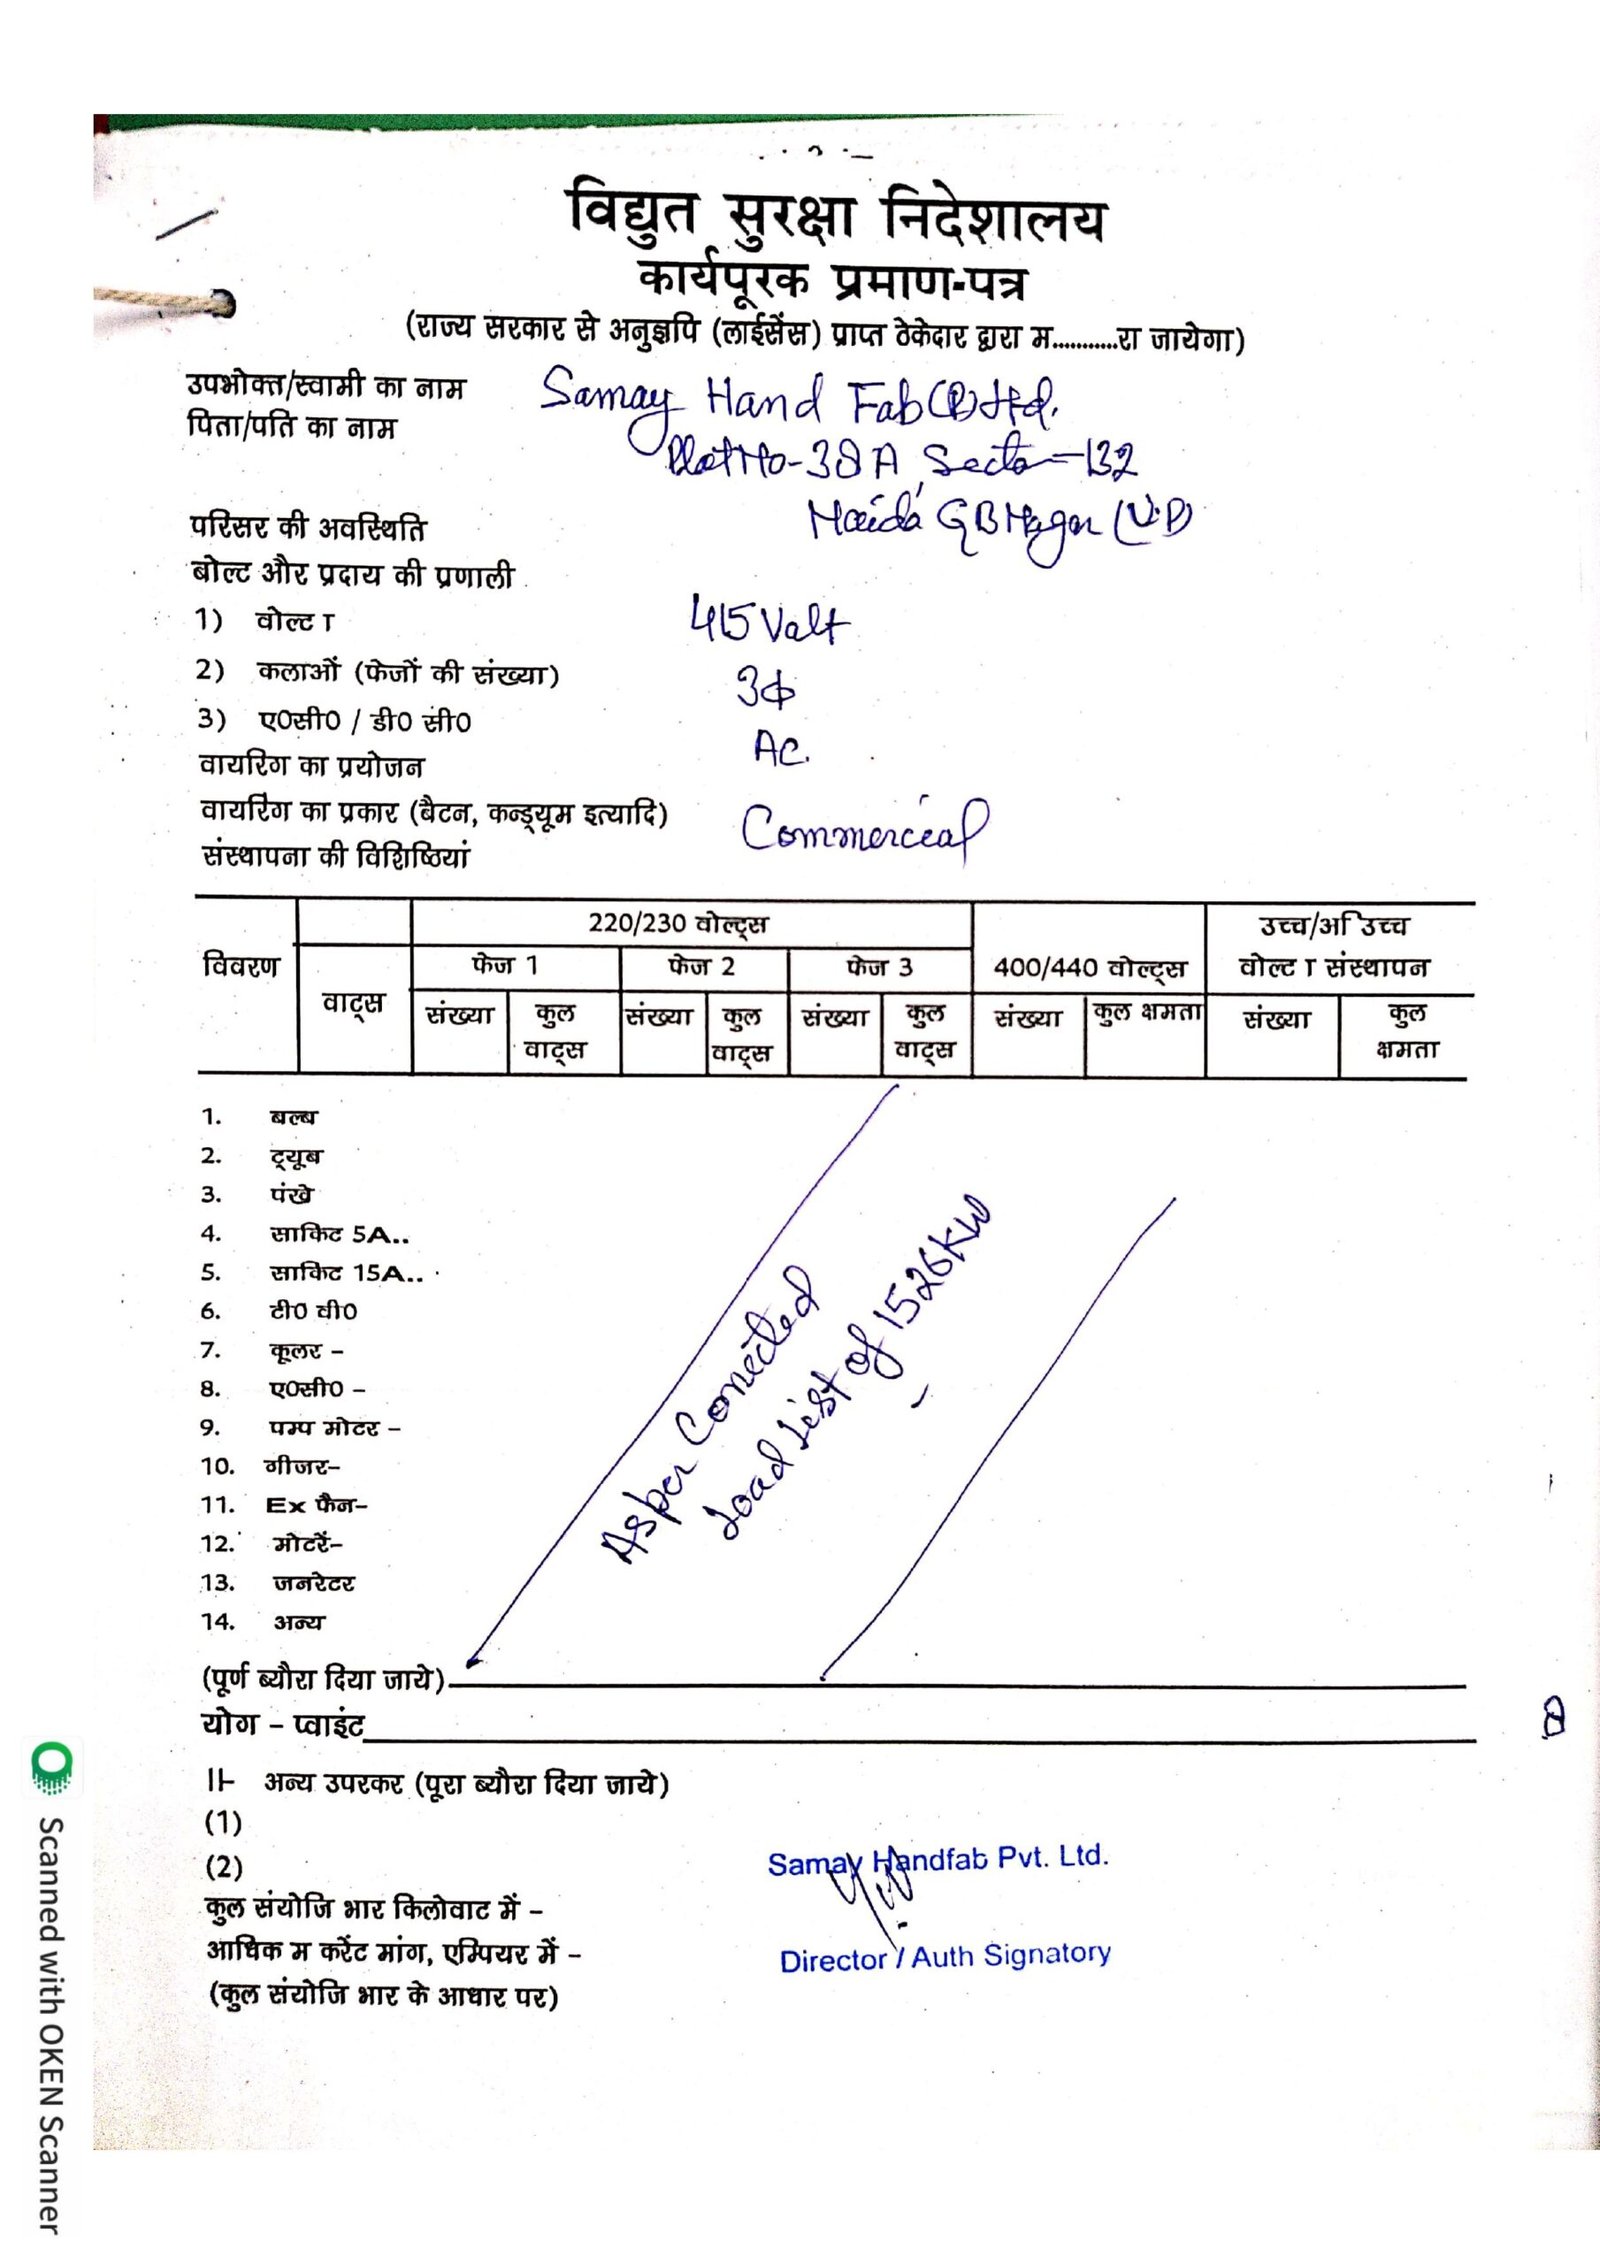 विद्युत सुरक्षा निदेशालय
कार्यपूरक प्रमाण-पत्र
(राज्य सरकार से अनुज्ञपि (लाईसेंस) प्राप्त ठेकेदार द्वारा म...........रा जायेगा)
उपभोक्त/स्वामी का नाम Samay Hand Fab (P) Ltd.
पिता/पति का नाम
Plot No-38A, Sector-132
Noida GB Nagar (U.P)
परिसर की अवस्थिति
बोल्ट और प्रदाय की प्रणाली
1) वोल्ट T 415 Valt
2) कलाओं (फेजों की संख्या) 3Φ
3) ए0सी0 / डी0 सी0 AC.
वायरिंग का प्रयोजन
वायरिंग का प्रकार (बैटन, कन्ड्यूम इत्यादि) Commercial
संस्थापना की विशिष्ठियां
220/230 वोल्ट्स उच्च/अि उच्च
विवरण फेज 1 फेज 2 फेज 3 400/440 वोल्ट्स वोल्ट T संस्थापन
वाट्स संख्या कुल संख्या कुल संख्या कुल संख्या कुल क्षमता संख्या कुल
वाट्स वाट्स वाट्स क्षमता
1. बल्ब
2. ट्यूब
3. पंखे
4. साकिट 5A..
5. साकिट 15A..
6. टी0 वी0
7. कूलर -
8. ए0सी0 -
9. पम्प मोटर -
10. गीजर-
11. Ex फैन-
12. मोटरें-
13. जनरेटर
14. अन्य
As per Conected
Load List of 1526KW
(पूर्ण ब्यौरा दिया जाये)
योग - प्वाइंट
II- अन्य उपरकर (पूरा ब्यौरा दिया जाये)
(1)
(2)
Samay Handfab Pvt. Ltd.
कुल संयोजि भार किलोवाट में -
आधिक म करेंट मांग, एम्पियर में -
Director / Auth Signatory
(कुल संयोजि भार के आधार पर)
Scanned with OKEN Scanner